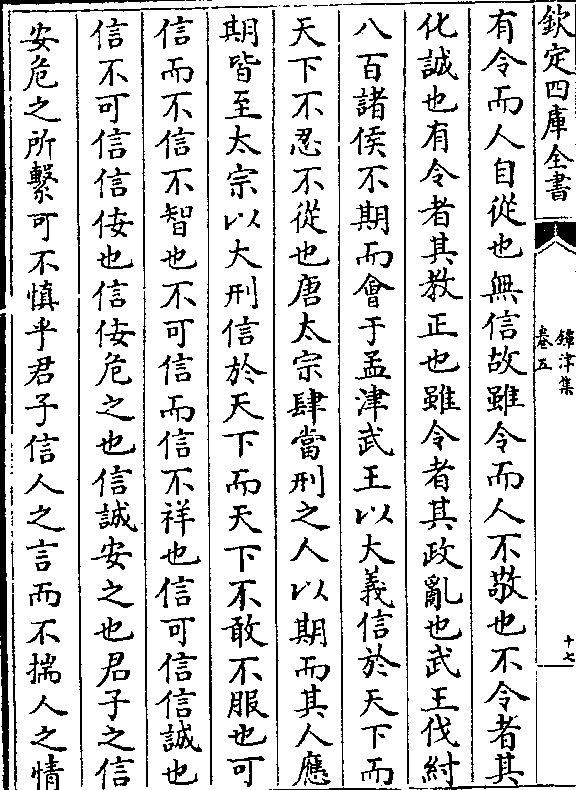 欽定四庫全書
鐔津集
卷五
十七
有令而人自從也無信故雖令而人不敬也不令者其
化誠也有令者其教正也雖令者其政亂也武王伐紂
八百諸侯不期而會于孟津武王以大義信於天下而
天下不忍不從也唐太宗肆當刑之人以期而其人應
期皆至太宗以大刑信於天下而天下不敢不服也可
信而不信不智也不可信而信不祥也信可信信誠也
信不可信信佞也信佞危之也信誠安之也君子之信
安危之所繫可不慎乎君子信人之言而不揣人之情